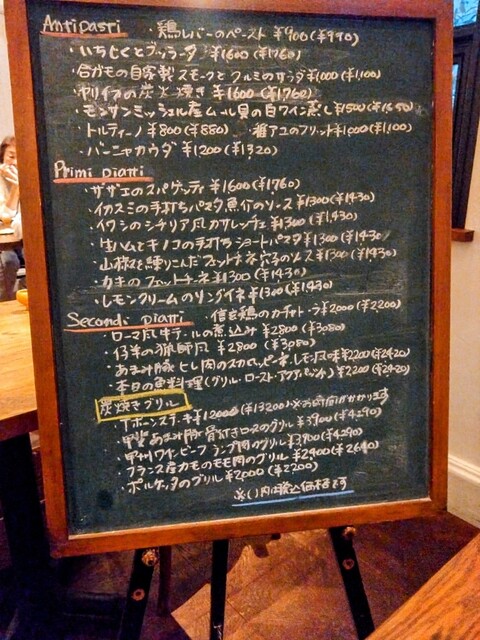 Antipasti ・鶏レバーのペースト ¥900(¥990)
・いちじくとブッラータ ¥1600(¥1760)
・合ガモの自家製スモークとクルミのサラダ ¥1000(¥1,100)
・ヤリイカの炭火焼き ¥1600(¥1760)
・モンサンミッシェル産ムール貝の白ワイン蒸し ¥1500(¥1650)
・トルティーノ ¥800(¥880) ・稚アユのフリット ¥1,000(¥1,100)
・バーニャカウダ ¥1200(¥1,320)
Primi piatti
・サザエのスパゲッティ ¥1600(¥1760)
・イカスミの手打ちパスタ魚介のソース ¥1300(¥1430)
・イワシのシチリア風カサレッチェ ¥1300(¥1,430)
・生ハムとキノコの手打ちショートパスタ ¥1300(¥1430)
・山椒を練りこんだフェットチーネ穴子のソース ¥1300(¥1,430)
・カキのフェットチーネ ¥1300(¥1430)
・レモンクリームのリングイネ ¥1300(¥1,430)
Secondi piatti ・信玄鶏のカチャトーラ ¥2000(¥2,200)
・ローマ風牛テールの煮込み ¥2800(¥3080)
・仔羊の猟師風 ¥2800(¥3,080)
・あまみ豚ヒレ肉のスカロッピーネ レモン風味 ¥2200(¥2420)
・本日の魚料理(グリル・ロースト・アクアパッツァ) ¥2200(¥2420)
炭焼きグリル
・Tボーンステーキ ¥12000(¥13200)※お時間がかかります
・甲斐あまみ豚骨付きロースのグリル ¥3900(¥4290)
・甲州ワインビーフ ランプ肉のグリル ¥3900(¥4290)
・フランス産カモのモモ肉のグリル ¥2400(¥2640)
・ポルケッタのグリル ¥2000(¥2200)
※( )内は税込価格です